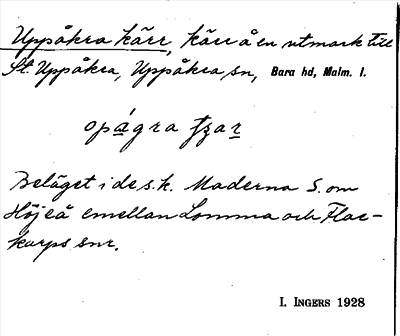 Uppåkra kärr, kärr å en utmark till
St. Uppåkra, Uppåkra sn, Bara hd, Malm. l.
opágra tzar
Beläget i de s. k. Maderna S. om
Höjeå emellan Lomma och Flac-
karps snr.
I. INGERS 1928